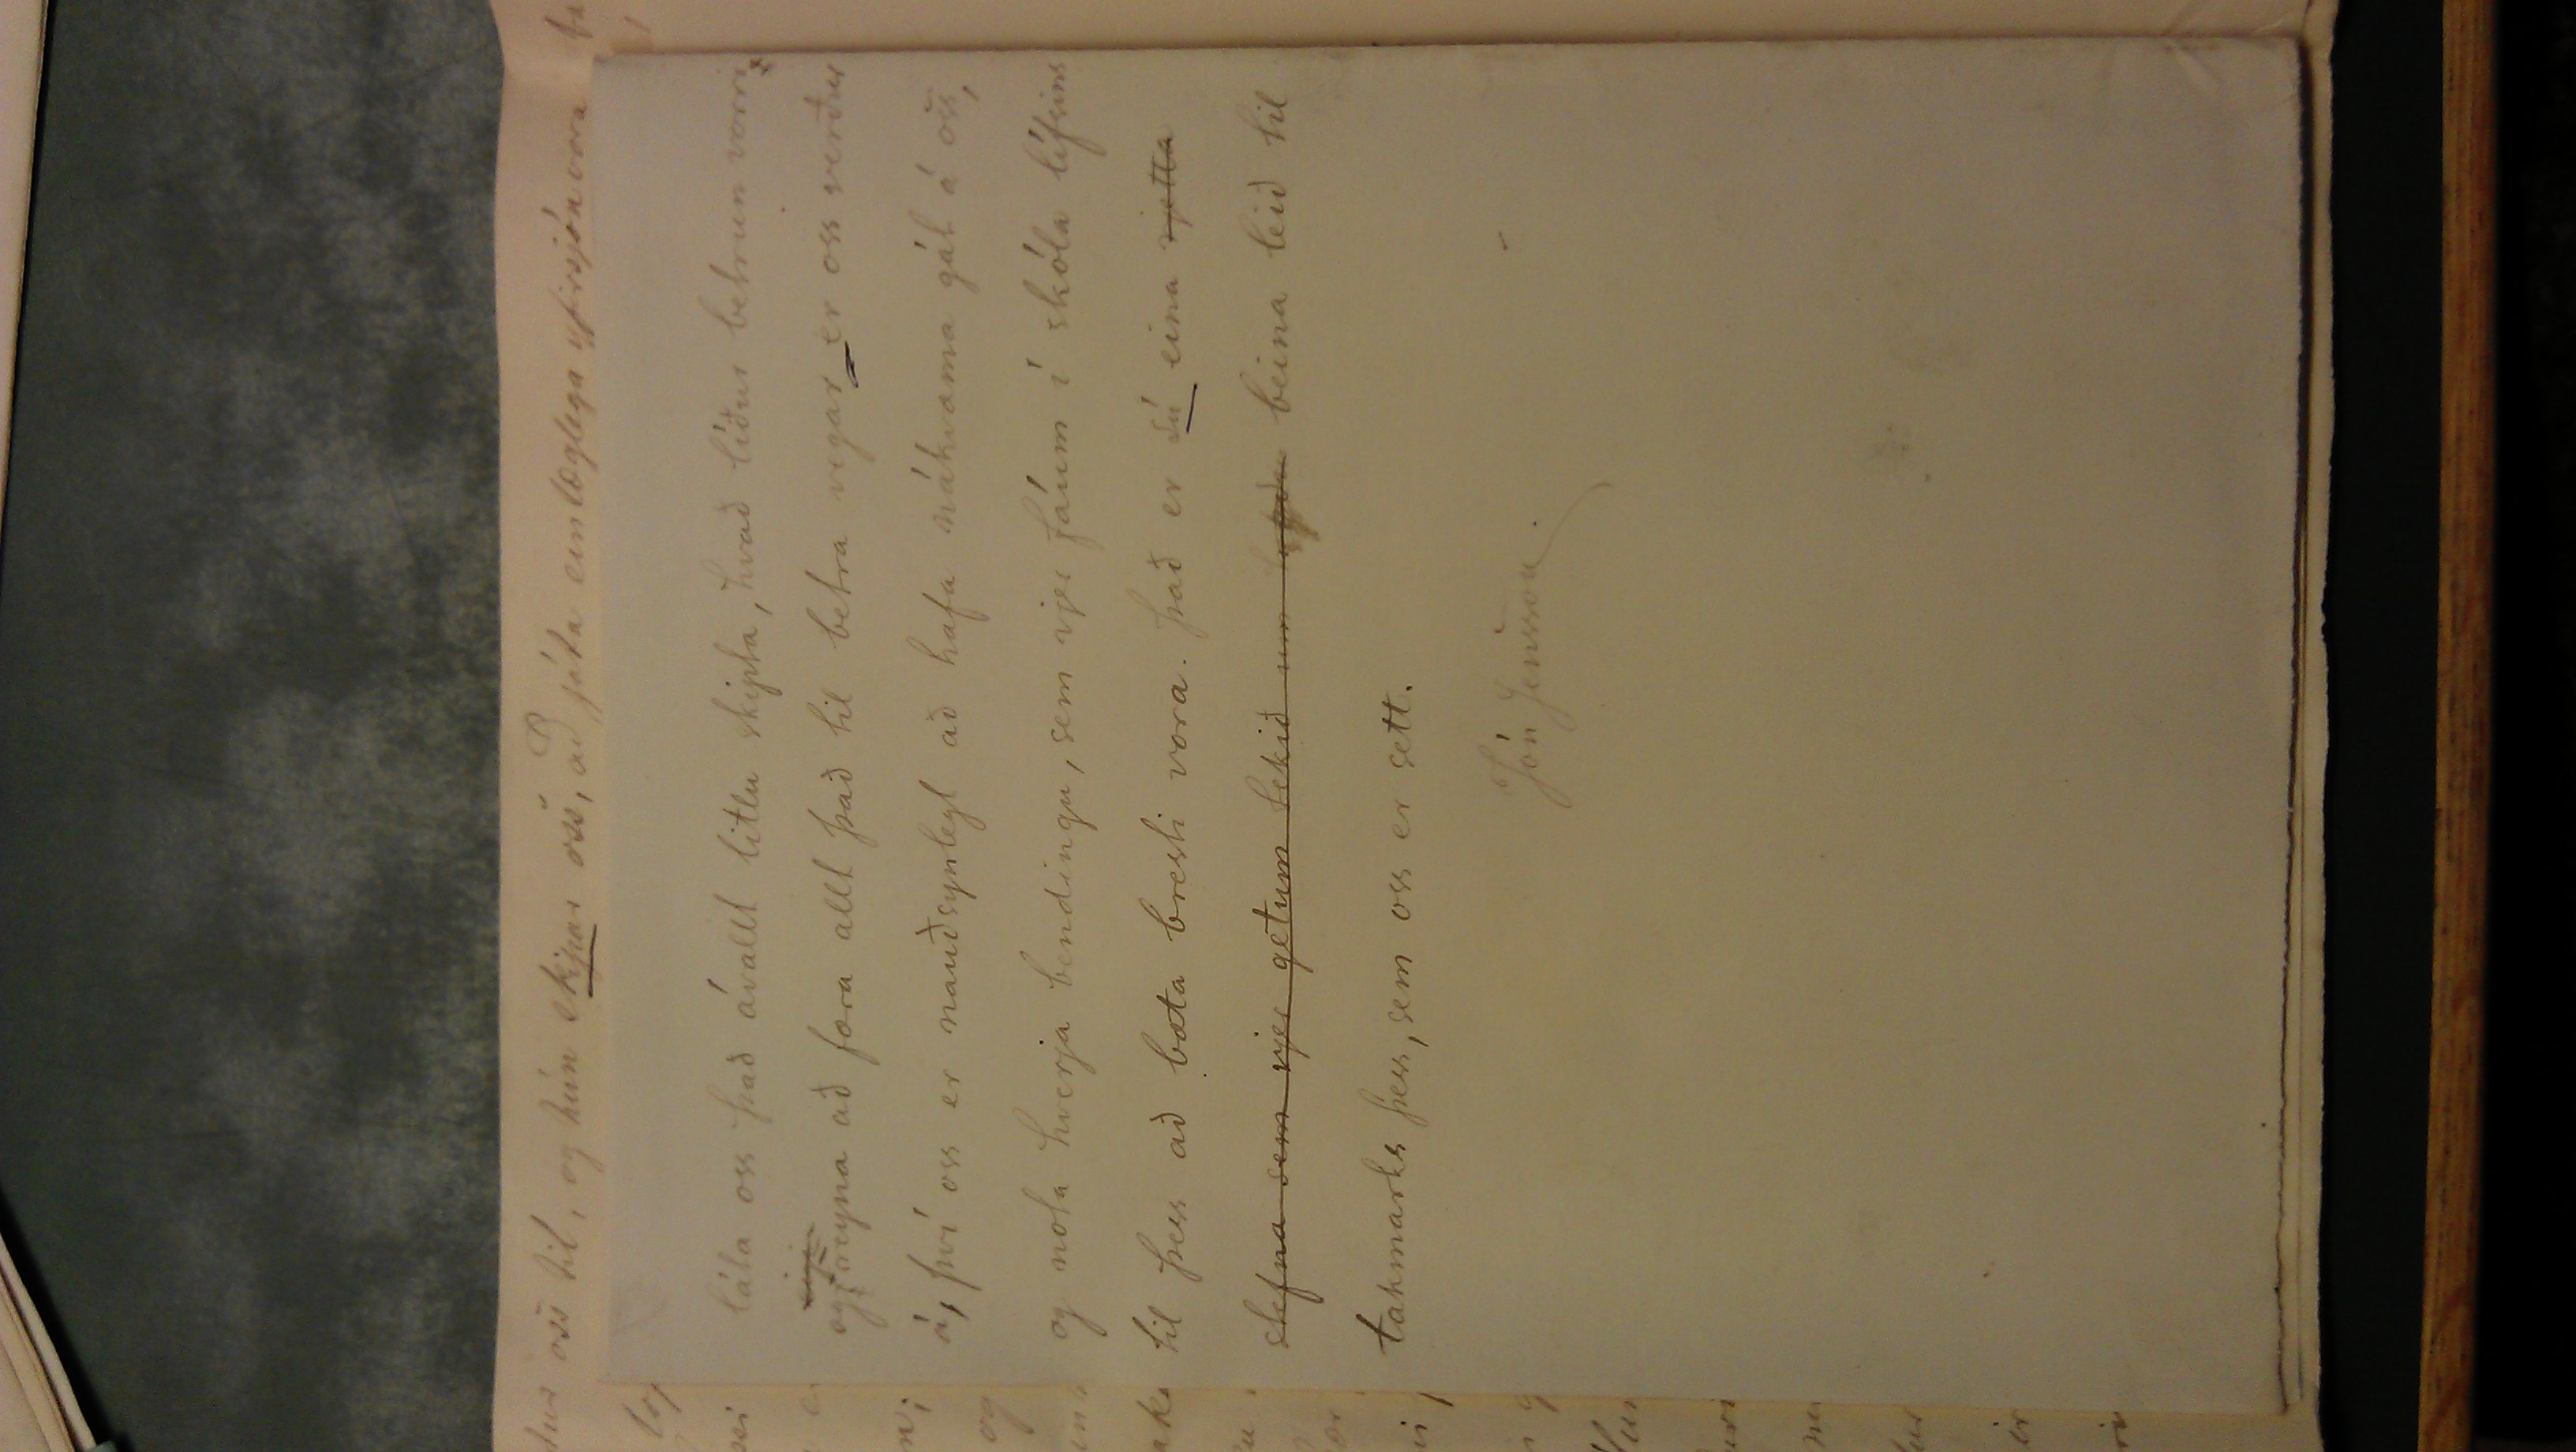 tur oss til, og hún skipar oss, að játa einlæglega yfirsjón vora
láta oss það ávallt litlu skipta, hvað líður betrun vorri,
og reyna að fœra allt það til betra vegar er oss verður
á, því oss er nauðsynlegt að hafa nákvæma gát á oss,
og nota hverja bendingu, sem vjer fáum í skóla lífsins
til þess að bœta bresti vora. Það er sú eina rjetta
stefna sem vjer getum tekið um beina leið til
takmarks þess, sem oss er sett.
Jón Jensson.